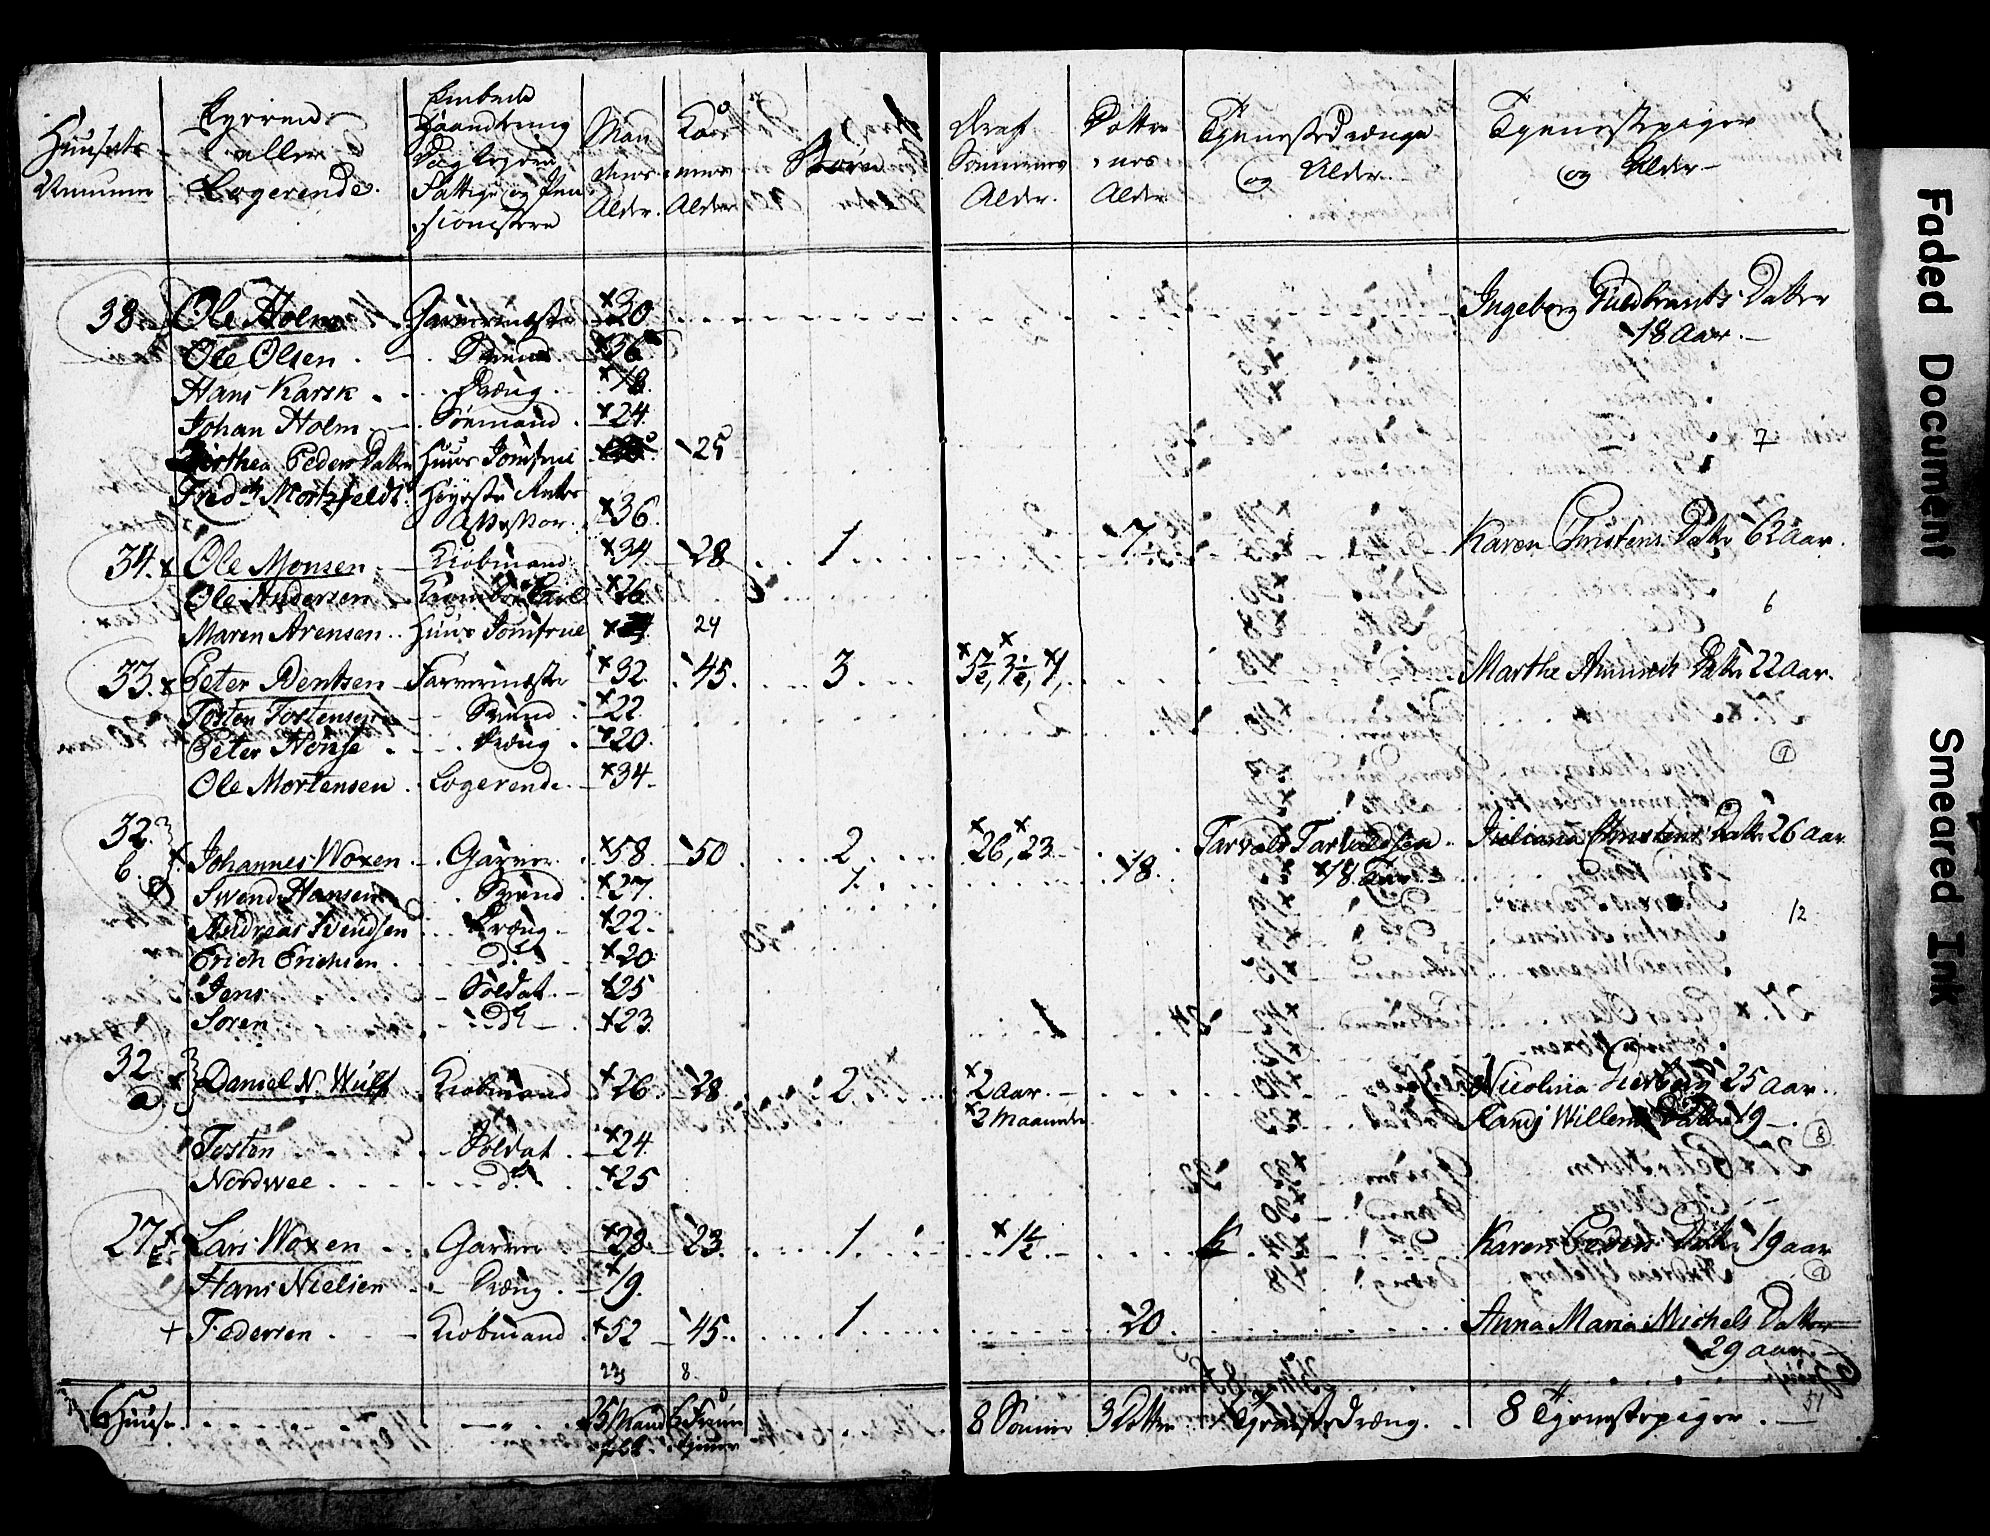 Huusets Nummer
Eyerende eller Logerende.
Embede Haandtering Dag Leyere Fattige og Pensionistere
Mandenes Alder.
Konernes Alder
Børn
Deraf Sønnernes Alder.
Døttrenes Alder
Tyenestedrænge og Alder.
Tyenestepiger og Alder
38. Ole Holm Garvermester 30 Ingeborg Guldbrants Datter
18 Aar.
Ole Olsen Svend 36
Hans Karsk Dræng 18
Johan Holm Sømand 24
Dorthea Peders Datter Huus Jomfrue 25
7
Fred. Mortzfeldt Høyeste Rets
Assessor 36
34. Ole Monsen Kiøbmand 34 28 1 7 Karen Christens Datter 62 aar.
Ole Andersen 26
6
Maren Arensen Huus Jomfrue 24
33. Peter Bentsen Farvermester 32 45 3 5½, 3½, 1, Marthe Datter 22 aar.
Tosten Tostensen Svend 22
Peter Dræng 20
9
Ole Mortensen Logerende 34
32. b. Johannes Woxen Garver 58 50 2 26, 23 Tarvald Tarvaldsen Juliana Christens Datter 26 aar
Swend Hansen Svend 27 1 18 18 aar
Andreas Svendsen Dræng 22
12
Erich Erichsen do 20
Jens Soldat 25
Soren do 23
32 a Daniel N. Wulf Kiobmand 26 28 2 2 aar Nicolina 25 aar
3 Maaneder Willems Datter 19
8
Tosten Soldat 24
Nordwee do 25
27 Lars Woxen Garver 28 23 1 1½ Karen Peders Datter 19 aar
4
Hans Nielsen Dræng 19
+ Federsen Kiobmand 52 45 1 20 Anna Maria Michels Datter
29 aar
23 8
6 Huuse 25 Mand 6 8 Sønner 3 Døttre 1 Tyenestedræng 8 Tyenestepiger 51
Faded Document
Smeared Ink